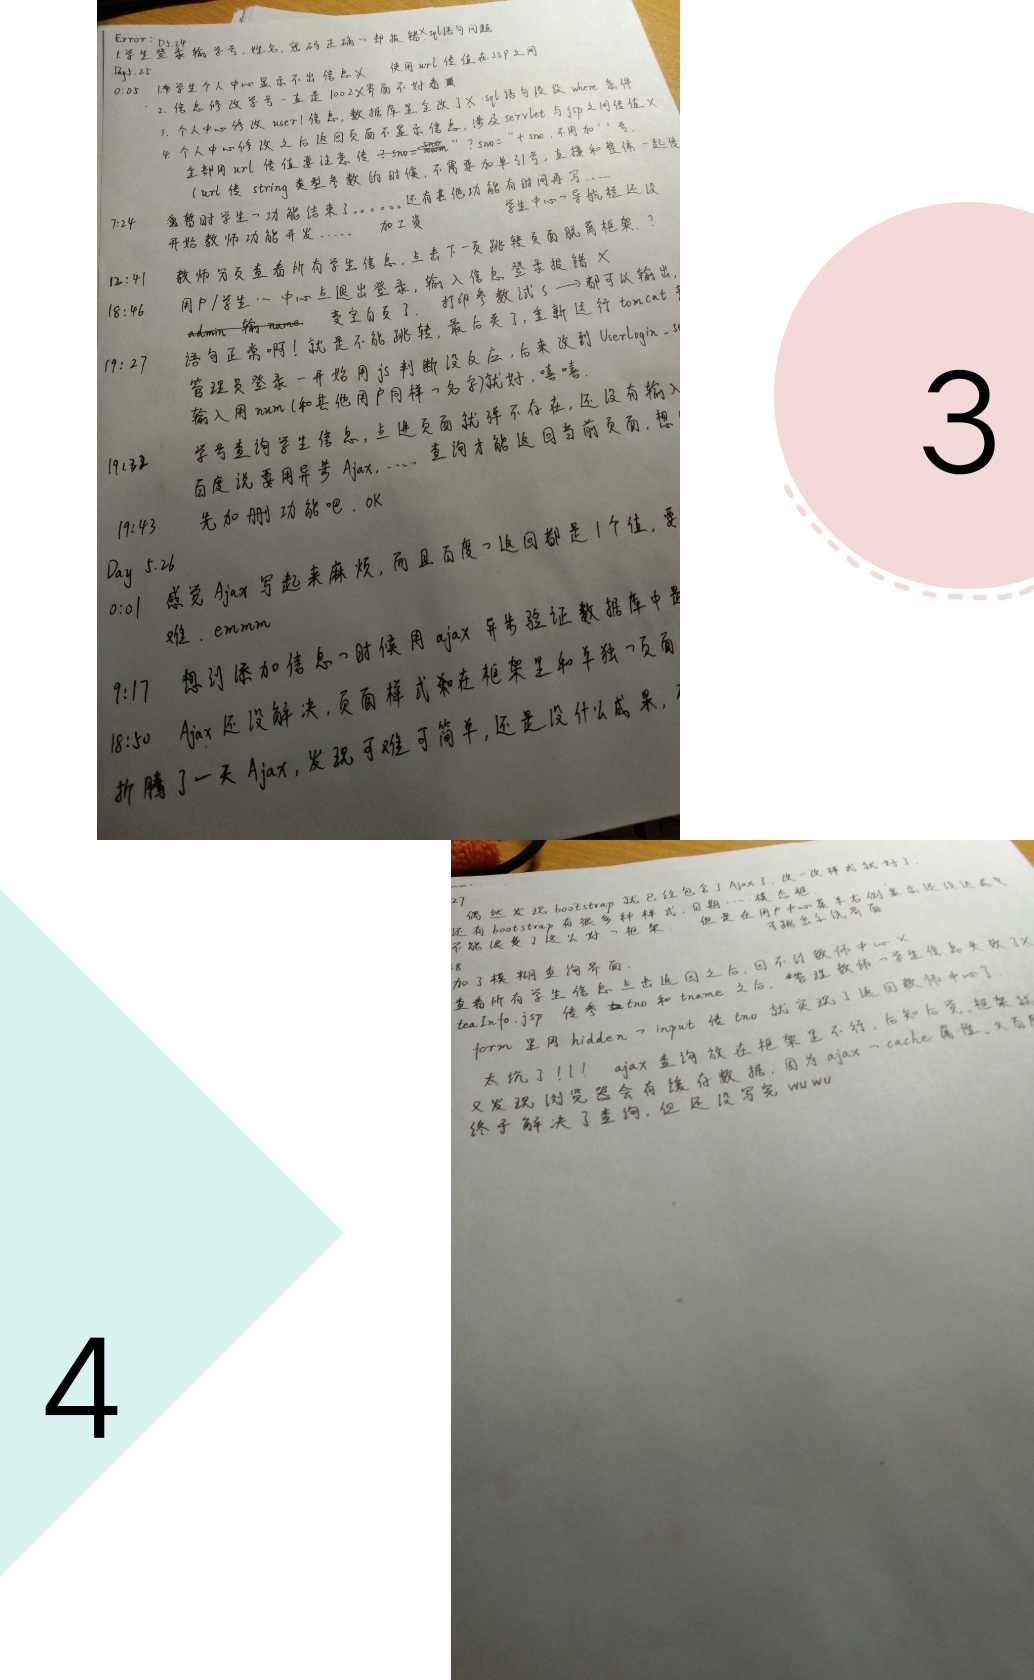 Error: D5.24
1.学生登录输学号、姓名、密码正确﹁却报错X.sql语句问题
Day5.25
0:05 1.学生个人中心显示不出信息X 使用url传值在jsp之间
2. 信息修改学号一直是1002X界面不好看
3. 个人中心修改user1信息,数据库里全改了X.sql语句没设where条件
4. 个人中心修改之后返回页面不显示信息,涉及servlet与jsp之间传值X
全部用url传值要注意传 "?sno="+sno.不用加''号.
(url传string类型参数的时候,不需要加单引号,直接和整体一起传
7:24 暂时学生﹁功能结束了......还有其他功能有时间再写.....
学生中心﹁导航栏还没
开始教师功能开发..... 加工资
12:41 教师分页查看所有学生信息,点击下一页跳转页面脱离框架.?
18:46 用户/学生...中心点退出登录,输入信息登录报错X
admin 输name 变空白页了. 打印参数试s→都可以输出,
19:27 语句正常啊!就是不能跳转,最后关了,重新运行tomcat
管理员登录一开始用js判断没反应,后来改到UserLogin_se
输入用num(和其他用户同样﹁名字)就好,嘻嘻.
19:32 学号查询学生信息,点进页面就弹不存在,还没有输入
百度说要用异步Ajax,.... 查询才能返回当前页面,想
19:43 先加删功能吧.OK
Day 5.26
0:01 感觉Ajax写起来麻烦,而且百度﹁返回都是1个值,要
难.emmm
9:17 想到添加信息﹁时候用ajax异步验证数据库中是
18:50 Ajax还没解决,页面样式在框架里和单独﹁页面
折腾了一天Ajax,发现可难可简单,还是没什么成果,
3
27
偶然发现bootstrap就已经包含了Ajax了,改一改样式就好了.
还有bootstrap有很多种样式.日期....模态框.
不能浪费了这么好﹁框架. 但是在用户中心菜单右侧显示还没达成
可跳出系统界面
28
加了模糊查询界面.
查看所有学生信息点击返回之后,回不到教师中心X
teaInfo.jsp 传参tno和tname之后,管理教师﹁学生信息失败了X
form里用hidden﹁input传tno就实现了返回教师中心了
太坑了!!! ajax查询放在框架里不行,后知后觉,框架
又发现浏览器会有缓存数据,因为ajax﹁cache属性、
终于解决了查询,但还没写完wuwu
4